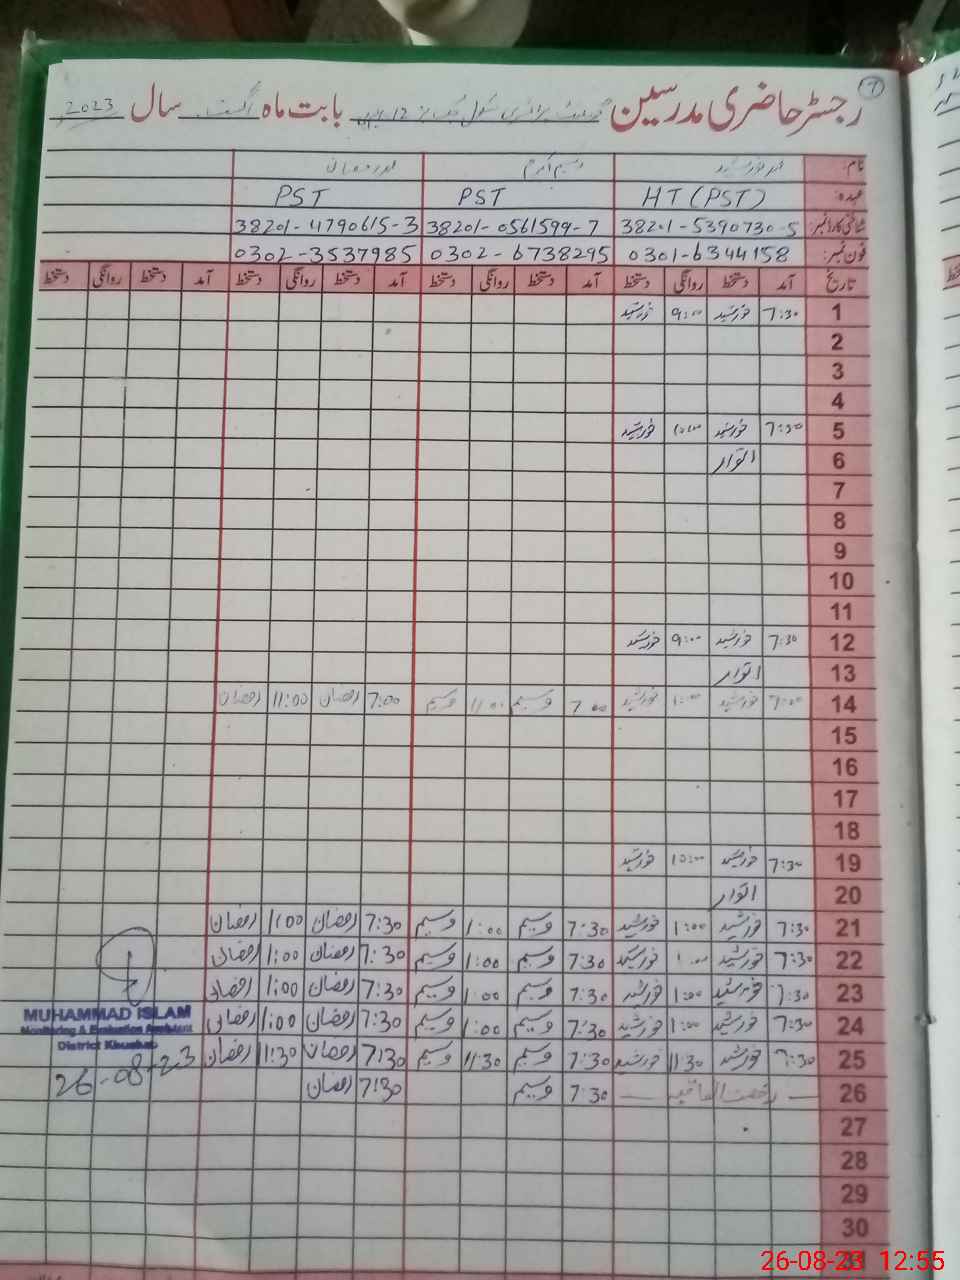 رجسٹر حاضری مدرسین گورنمنٹ پرائمری سکول چک نمبر 12 بابت ماہ اگست سال 2023
7
نام: محمد خورشید وسیم اکرم محمد رمضان
عہدہ: HT (PST) PST PST
شناختی کارڈ نمبر: 38201-5390730-5 38201-0561599-7 38201-4790615-3
فون نمبر: 0301-6344158 0302-6738295 0302-3537985
تاریخ آمد دستخط روانگی دستخط آمد دستخط روانگی دستخط آمد دستخط روانگی دستخط آمد دستخط روانگی دستخط
1 7:30 خورشید 9:00 خورشید
2
3
4
5 7:30 خورشید 10:00 خورشید
6 اتوار
7
8
9
10
11
12 7:30 خورشید 9:00 خورشید
13 اتوار
14 7:00 خورشید خورشید 7:00 وسیم 11:00 وسیم 7:00 رمضان 11:00 رمضان
15
16
17
18
19 7:30 خورشید 10:00 خورشید
20 اتوار
21 7:30 خورشید 1:00 خورشید 7:30 وسیم 1:00 وسیم 7:30 رمضان 1:00 رمضان
22 7:30 خورشید 1:00 خورشید 7:30 وسیم 1:00 وسیم 7:30 رمضان 1:00 رمضان
23 7:30 خورشید 1:00 خورشید 7:30 وسیم 1:00 وسیم 7:30 رمضان 1:00 رمضان
24 7:30 خورشید 1:00 خورشید 7:30 وسیم 1:00 وسیم 7:30 رمضان 1:00 رمضان
25 7:30 خورشید 11:30 خورشید 7:30 وسیم 11:30 وسیم 7:30 رمضان 11:30 رمضان
26 رخصت اتفاقیہ 7:30 وسیم 7:30 رمضان
27
28
29
30
31
MUHAMMAD ISLAM
Monitoring & Evaluation Assistant
District Khushab
26-08-23
26-08-23 12:55